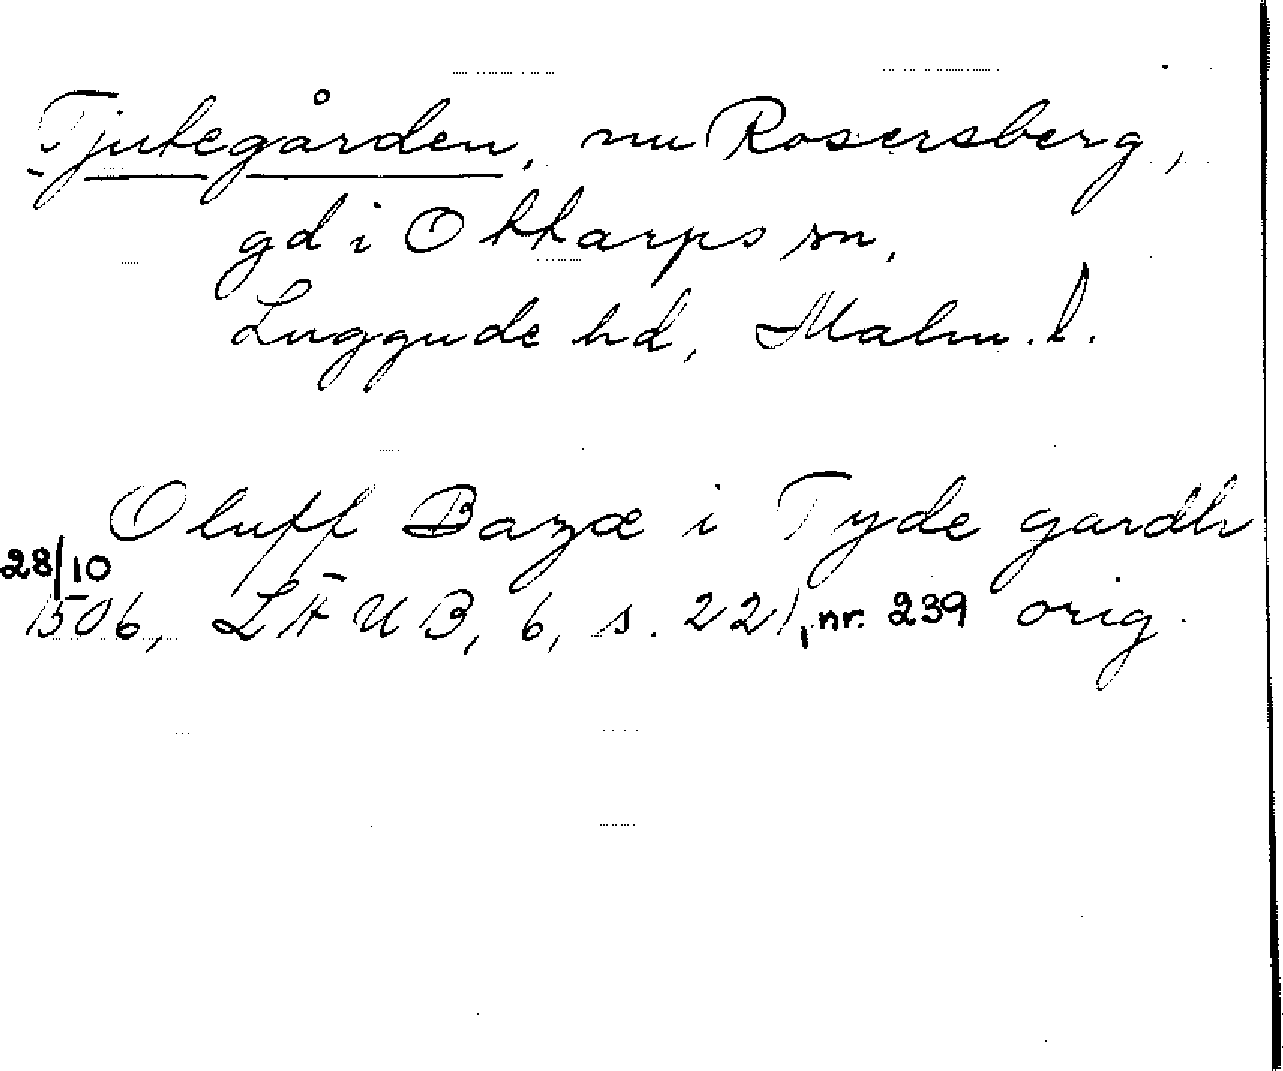 Tjutegården, nu Rosersberg,
gd i Ottarps sn,
Luggude hd, Malm. l.
Oluff Bazæ i Tyde gardh
28/10
1506, LÄUB, 6, s. 221, nr. 239 orig.